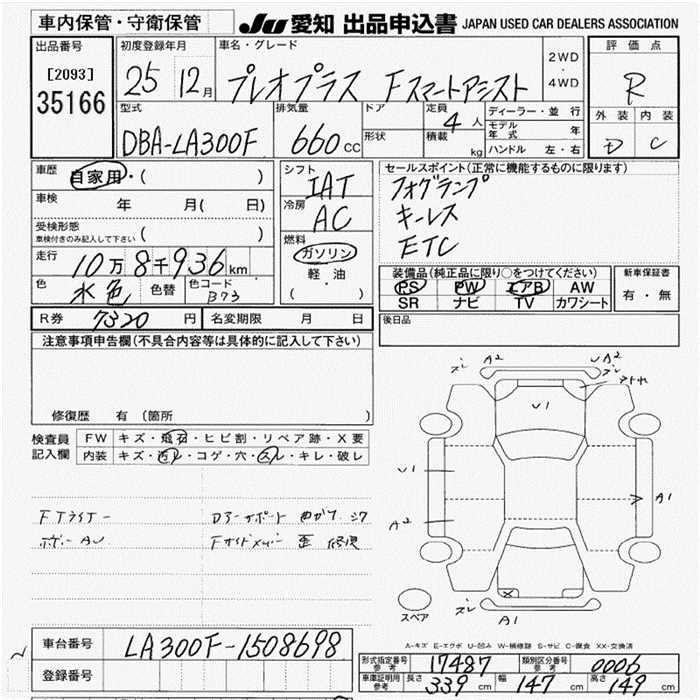 車内保管・守衛保管 JU 愛知 出品申込書 JAPAN USED CAR DEALERS ASSOCIATION
出品番号 初度登録年月 車名・グレード 評価点
[2093] 25 12月 プレオプラス Fスマートアシスト 2WD・4WD R
35166
型式 排気量 ドア 定員 4人 ディーラー・並行 外装 内装
DBA-LA300F 660cc 形状 積載 kg モデル年式 年 D C
ハンドル 左・右
車歴 自家用・( ) シフト IAT セールスポイント(正常に機能するものに限ります)
車検 年 月( 日) 冷房 AC フォグランプ
受検形態 車検付きのみ記入して下さい ( ) キーレス
燃料 ガソリン ETC
走行 10万8千936km 軽油
装備品(純正品に限り○をつけてください) 新車保証書
色 水色 色替 色コード B73 ( )
PS PW エアB AW 有・無
SR ナビ TV カワシート
R券 7320円 名変期限 月 日 後日品
注意事項申告欄(不具合内容等は具体的に記入して下さい)
修復歴 有 (箇所
検査員記入欄 FW キズ・飛石・ヒビ割・リペア跡・X要
内装 キズ・汚レ・コゲ・穴・スレ・キレ・破レ
ズレ A2 A2 ズレ
U1
U1
A2 A1
Fライナー
スペア ズレ A1
A-キズ E-エクボ U-凹み W-補修跡 S-サビ C-腐食 XX-交換済
車台番号 LA300F-1508698
登録番号
型式指定番号 参考 17487 類別区分番号 参考 0006
車庫証明用 参考 長さ 339cm 幅 147cm 高さ 149cm